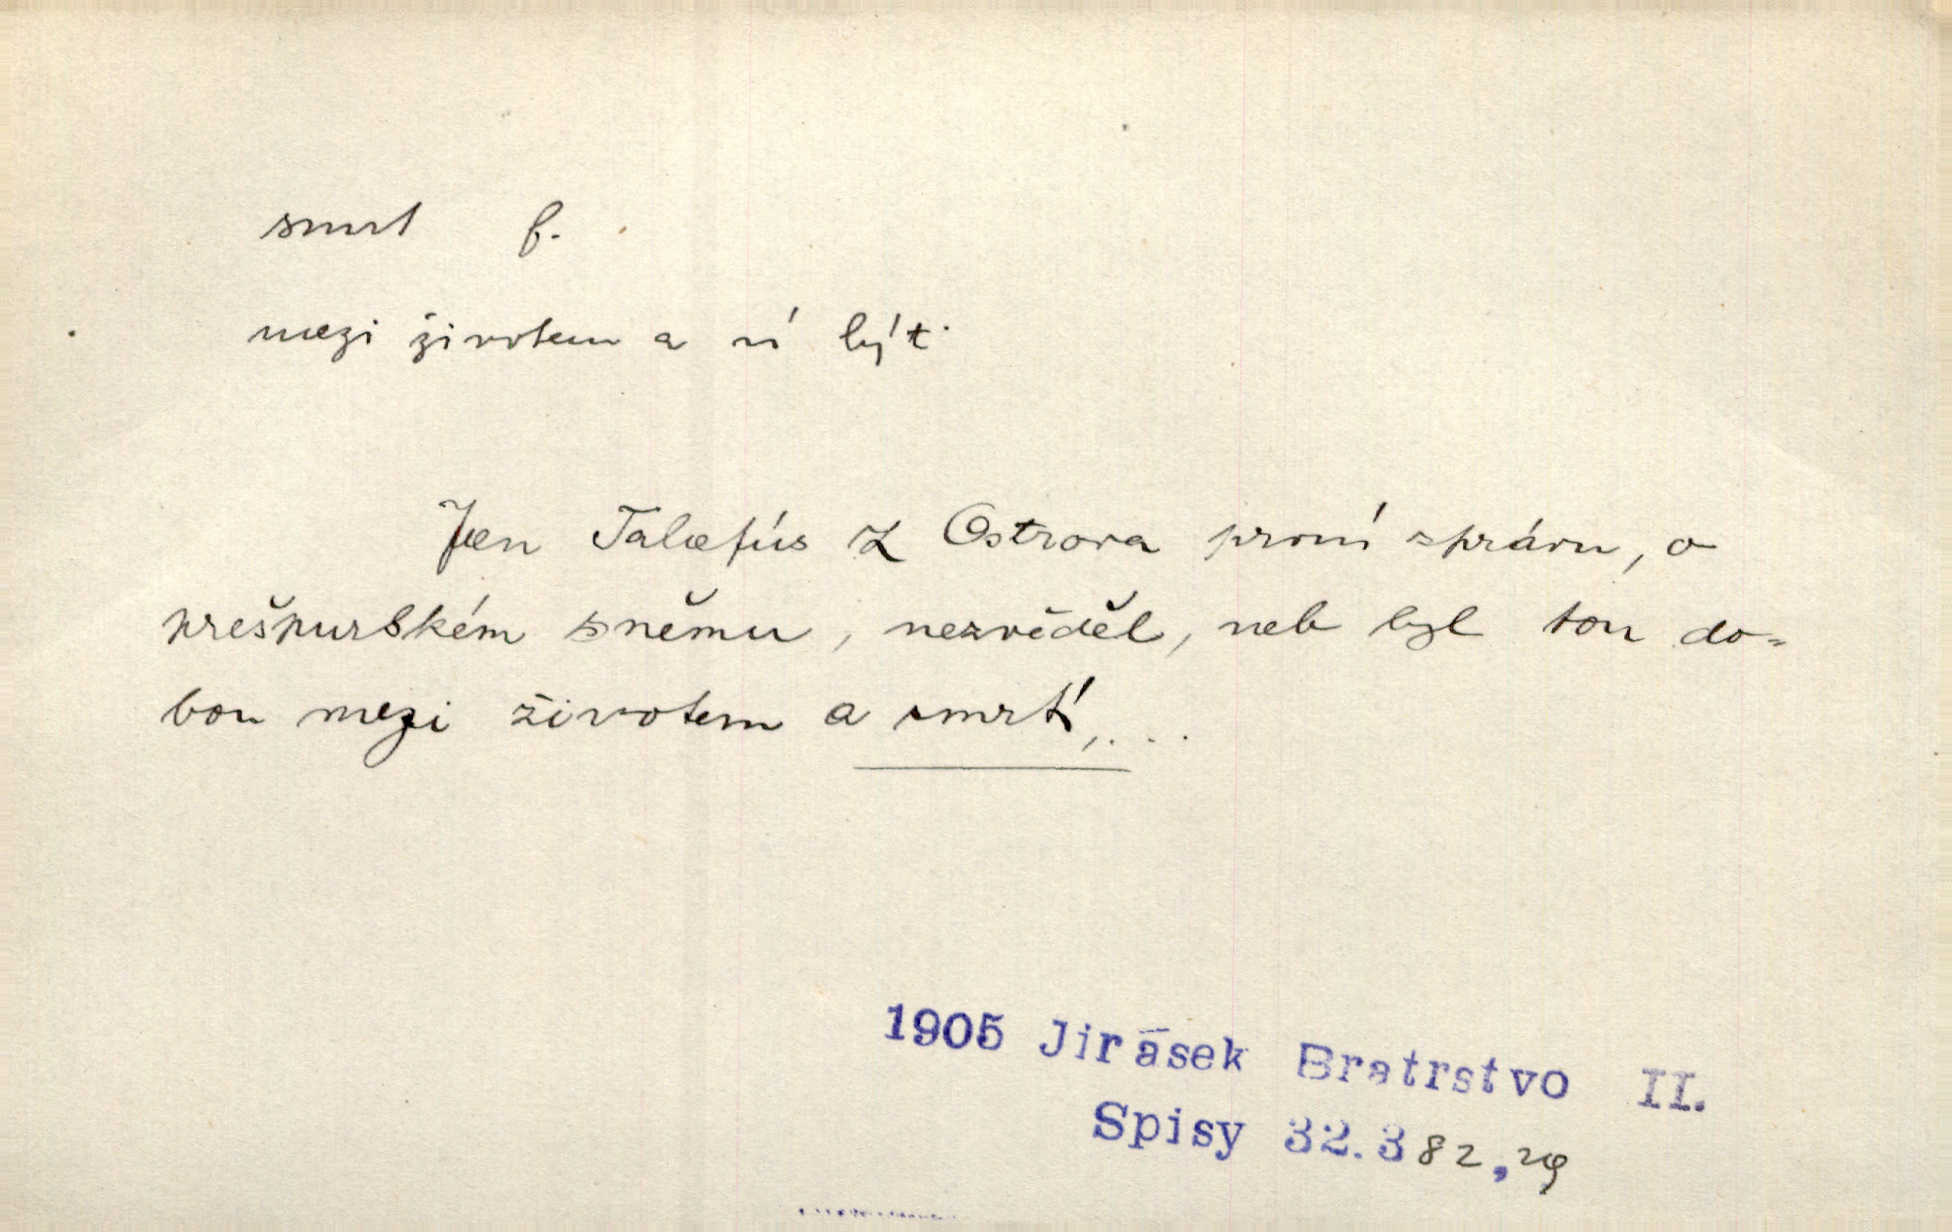 smrt f.
mezi životem a ~í být
Jen Talafús z Ostrova první zprávu, o
prešpurském sněmu, nezvěděl, neb byl tou do-
bou mezi životem a smrtí,...
1905 Jirásek Bratrstvo II.
Spisy 32.382,29